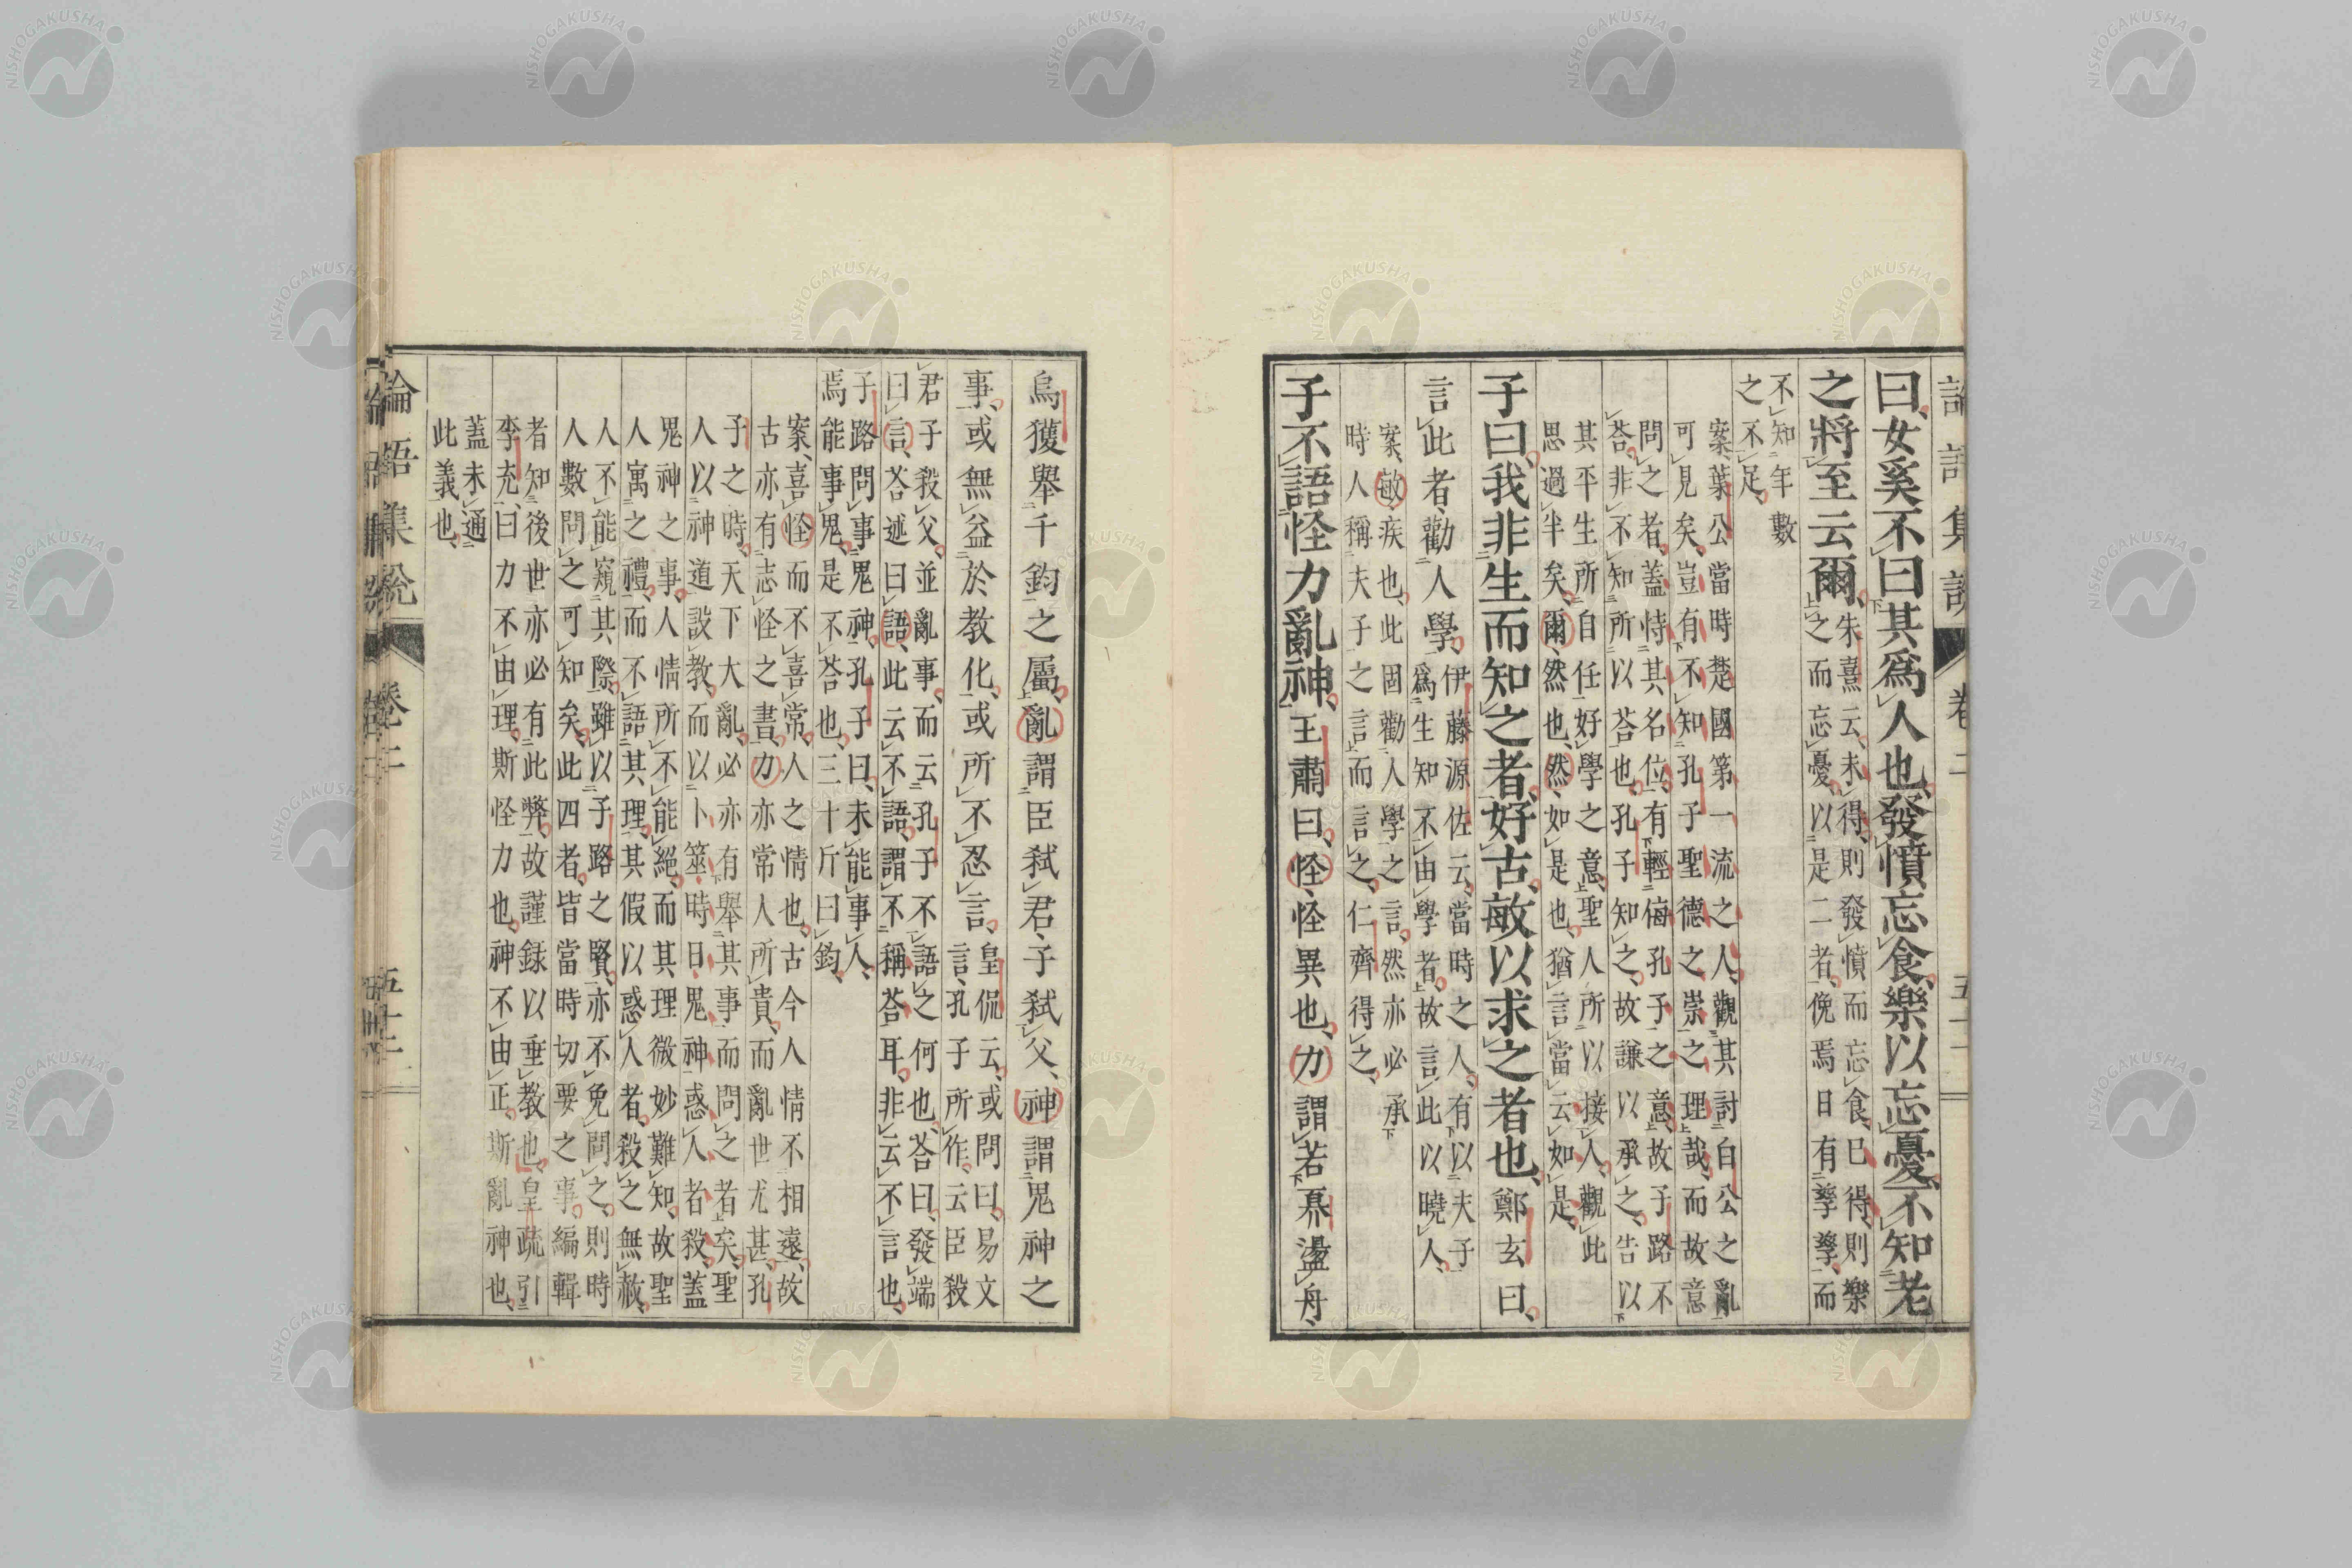 曰、女奚不曰其爲人也、發憤忘食、樂以忘憂、不知老
之將至云爾、
朱熹云、未得、則發憤而忘食、已得、則樂
之而忘憂、以是二者、俛焉日有孳孳、而
不知年數
之不足、
案、葉公當時楚國第一流之人、觀其討白公之亂
可見矣、豈有不知孔子聖德之崇之理哉、而故意
問之者、蓋恃其名位、有輕侮孔子之意、故子路不
荅、非不知所以荅也、孔子知之、故謙以承之、告以
其平生所自任好學之意、聖人所以接人、觀此
思過半矣、爾、然也、然、如是也、猶言當云如是、
子曰、我非生而知之者、好古、敏以求之者也、鄭玄曰、
言此者、勸人學、
伊藤源佐云、當時之人、有以夫子
爲生知不由學者、故言此以曉人、
案、敏、疾也、此固勸人學之言、然亦必承
時人稱夫子之言而言之、仁齊得之、
子不語怪力亂神、王肅曰、怪、怪異也、力謂若奡盪舟、
烏獲舉千鈞之屬、亂謂臣弒君、子弒父、神謂鬼神之
事、或無益於教化、或所不忍言、
皇侃云、或問曰、易文
言、孔子所作、云臣殺
君子殺父、並亂事、而云孔子不語之何也、荅曰、發端
曰言、荅述曰語、此云不語、謂不稱荅耳、非云不言也、
子路問事鬼神、孔子曰、未能事人、
焉能事鬼、是不荅也、三十斤曰鈞、
案、喜怪而不喜常、人之情也、古今人情不相遠、故
古亦有志怪之書、力亦常人所貴、而亂世尤甚、孔
子之時、天下大亂、必亦有舉其事而問之者矣、聖
人以神道設教、而以卜筮時日鬼神惑人者殺、蓋
鬼神之事、人情所不能絕、而其理微妙難知、故聖
人寓之禮、而不語其理、其假以惑人者、殺之無赦、
人不能窺其際、雖以子路之賢、亦不免問之、則時
人數問之可知矣、此四者、皆當時切要之事、編輯
者知後世亦必有此弊、故謹録以垂教也、皇疏引
李充曰力不由理、斯怪力也、神不由正、斯亂神也、
蓋未通
此義也、
論語集說 卷二 五十二